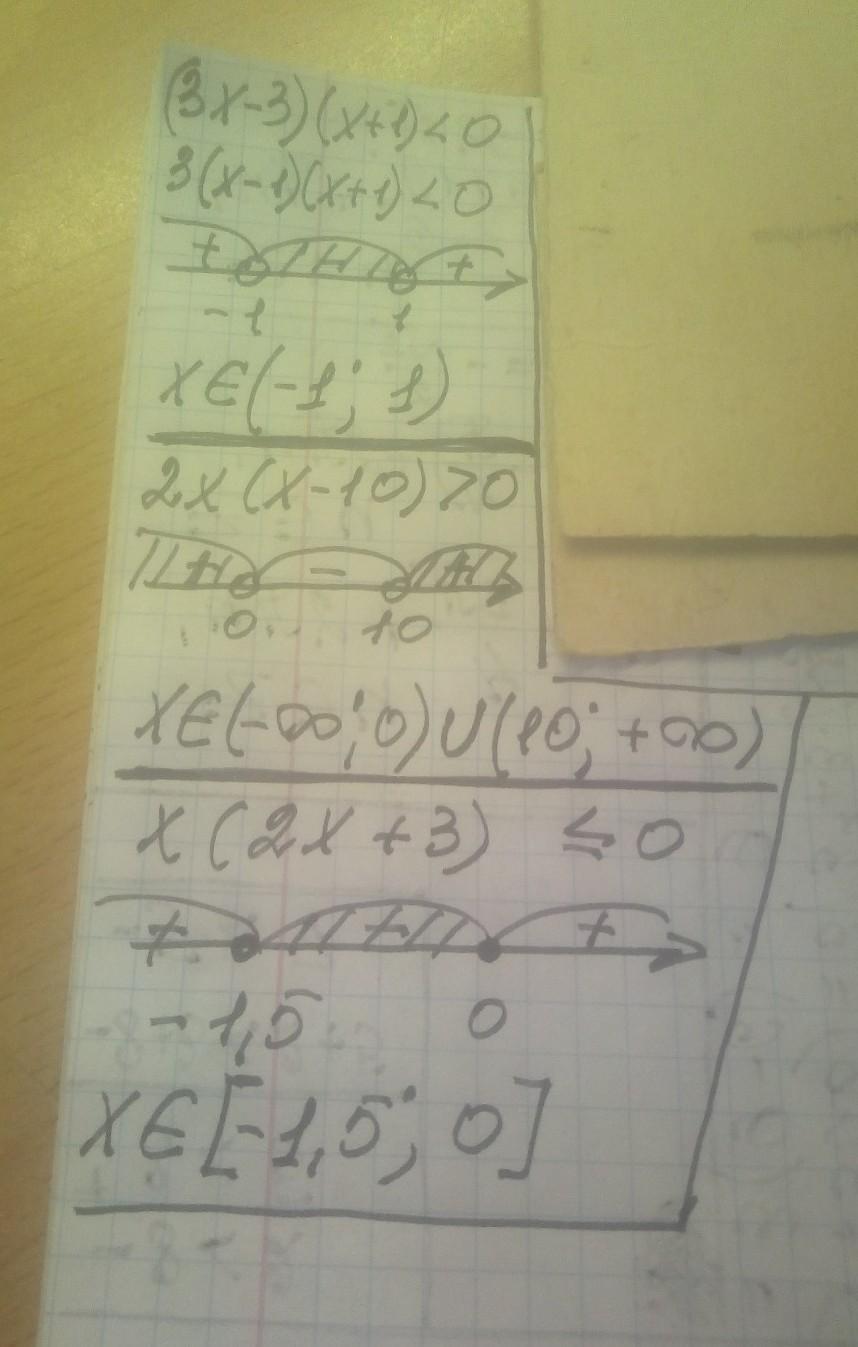 (3x-3)(x+1)<0
3(x-1)(x+1)<0
+ - +
-1 1
x∈(-1; 1)
2x(x-10)>0
+ - +
0 10
x∈(-∞; 0)∪(10; +∞)
x(2x+3) ≤ 0
+ - +
-1,5 0
x∈[-1,5; 0]